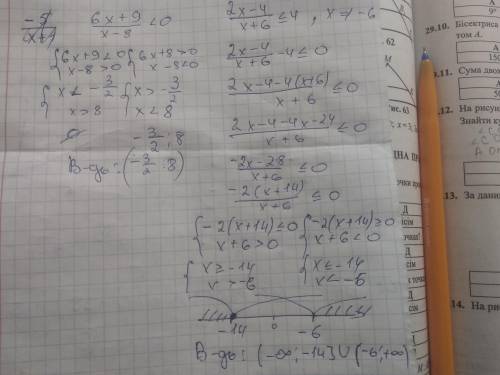 6x+9/x-8 < 0
{6x+9<0 {6x+9>0
{x-8>0 {x-8<0
{x<-3/2 {x>-3/2
{x>8 {x<8
-3/2 ; 8
В-дь: (-3/2 ; 8)
2x-4/x+6 ≤ 4, x ≠ -6
2x-4/x+6 - 4 ≤ 0
2x-4-4(x+6)/x+6 ≤ 0
2x-4-4x-24/x+6 ≤ 0
-2x-28/x+6 ≤ 0
-2(x+14)/x+6 ≤ 0
{-2(x+14)≤0 {-2(x+14)≥0
{x+6>0 {x+6<0
{x≥-14 {x≤-14
{x>-6 {x<-6
-14 0 -6
В-дь: (-∞;-14]∪(-6;+∞)
29.10. Бісектриса
том A.
9°
.11. Сума двох
.12. На рисун
Знайти к
.13. За дани
14. На ри
рис. 63
. 62